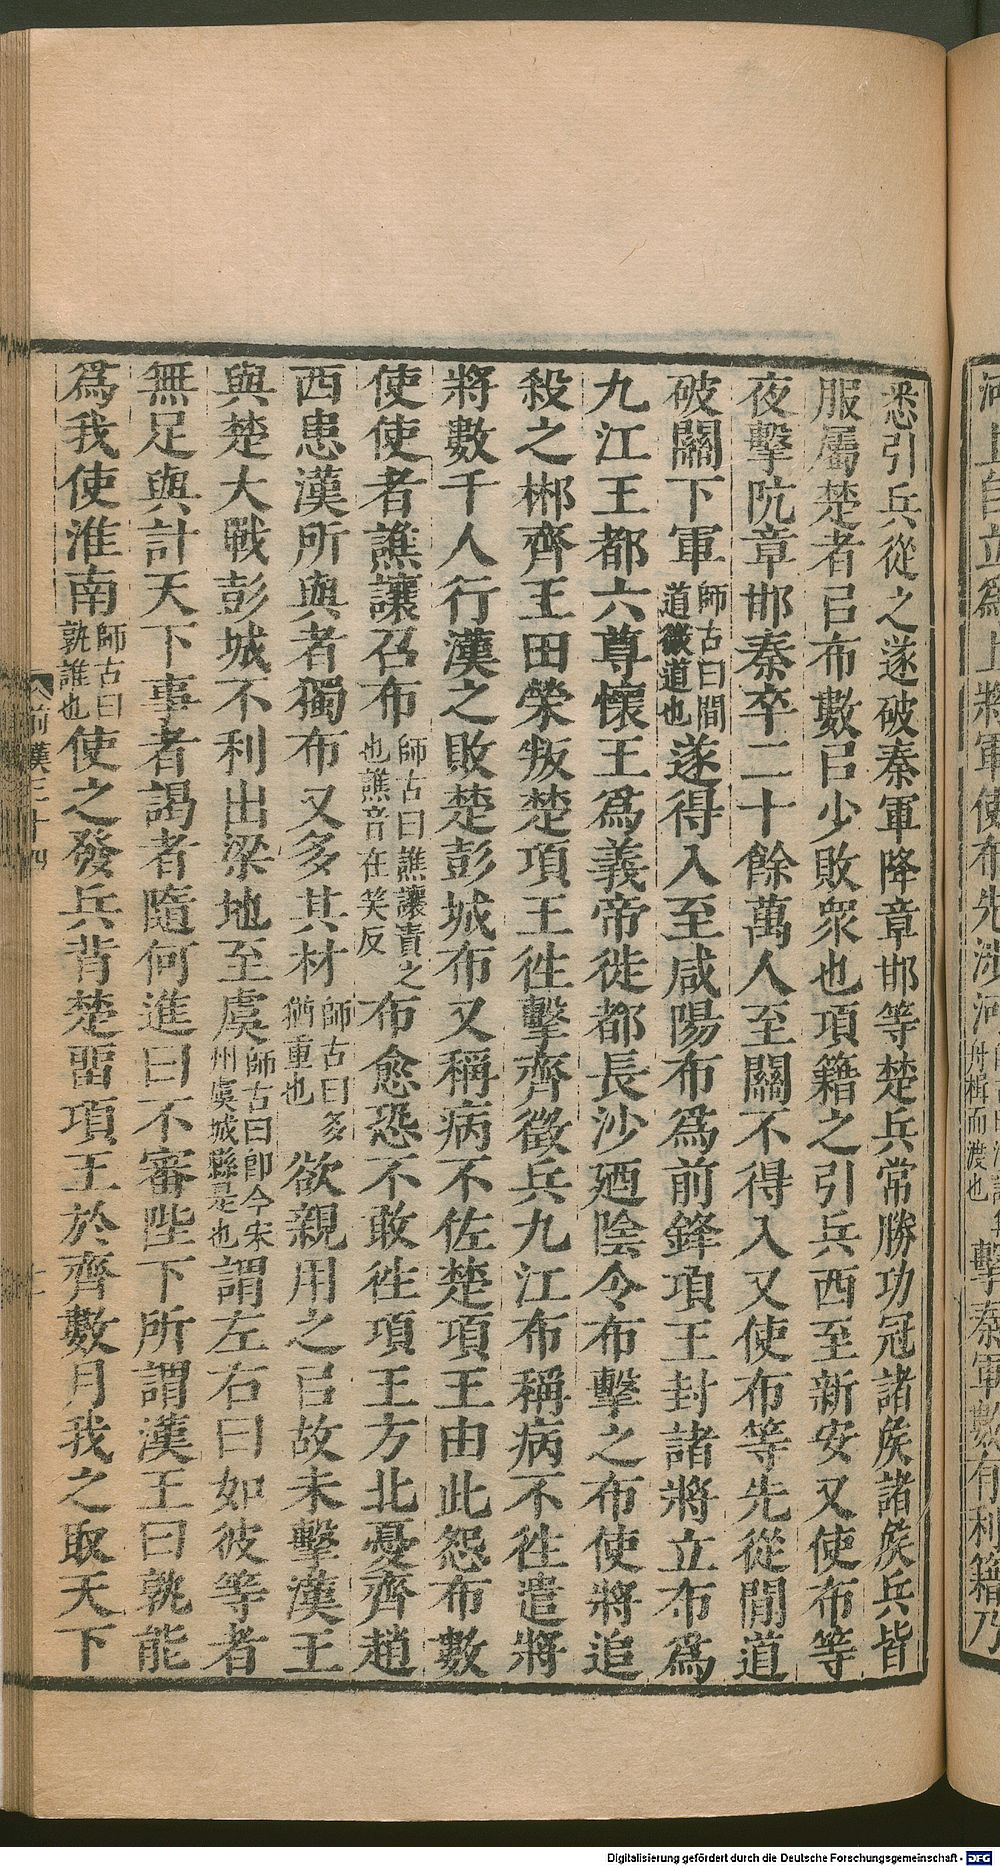 河上自立爲上將軍使布先涉河
舟楫而渡也
擊秦軍數有利籍乃
悉引兵從之遂破秦軍降章邯等楚兵常勝功冠諸侯諸侯兵皆
服屬楚者㠯布數㠯少敗衆也項籍之引兵西至新安又使布等
夜擊阬章邯秦卒二十餘萬人至關不得入又使布等先從間道
破關下軍師古曰間道微道也遂得入至咸陽布爲前鋒項王封諸將立布爲
九江王都六尊懷王爲義帝徙都長沙廼陰令布擊之布使將追
殺之郴齊王田榮叛楚項王徃擊齊徵兵九江布稱病不徃遣將
將數千人行漢之敗楚彭城布又稱病不佐楚項王由此怨布數
使使者譙讓召布師古曰譙讓責之也譙音在笑反布愈恐不敢徃項王方北憂齊趙
西患漢所與者獨布又多其材師古曰多猶重也欲親用之㠯故未擊漢王
與楚大戰彭城不利出梁地至虞師古曰卽今宋州虞城縣是也謂左右曰如彼等者
無足與計天下事者謁者隨何進曰不審陛下所謂漢王曰孰能
爲我使淮南師古曰孰誰也使之發兵背楚畱項王於齊數月我之取天下
前漢三十四
Digitalisierung gefördert durch die Deutsche Forschungsgemeinschaft - DFG